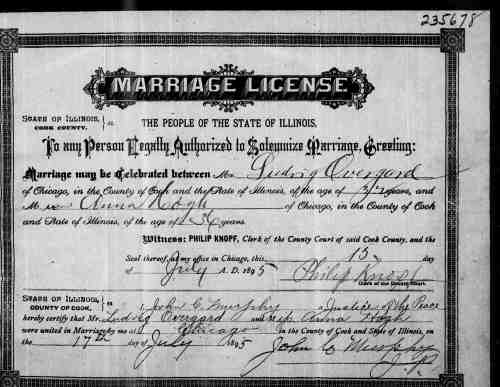 235678
MARRIAGE LICENSE
STATE OF ILLINOIS,
COOK COUNTY. } ss.
THE PEOPLE OF THE STATE OF ILLINOIS,
To any Person Legally Authorized to Solemnize Marriage, Greeting:
Marriage may be Celebrated between Mr. Ludvig Overgard
of Chicago, in the County of Cook and the State of Illinois, of the age of years, and
M iss Anna Hogh of Chicago, in the County of Cook
and State of Illinois, of the age of years.
Witness: PHILIP KNOPF, Clerk of the County Court of said Cook County, and the
Seal thereof, at my office in Chicago, this 15 day
of July A. D. 1895
Philip Knopf
Clerk of the County Court
STATE OF ILLINOIS,
COUNTY OF COOK. } ss. I, John C. Murphy a Justice of the Peace
hereby certify that Mr. Ludvig Overgard and Miss Anna Hogh
were united in Marriage by me at Chicago in the County of Cook and State of Illinois, on
the 17th day of July 1895
John C Murphy
J.P.